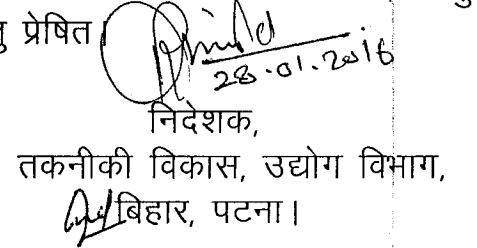 प्रेषित
28.01.2016
निदेशक,
तकनीकी विकास, उद्योग विभाग,
बिहार, पटना।